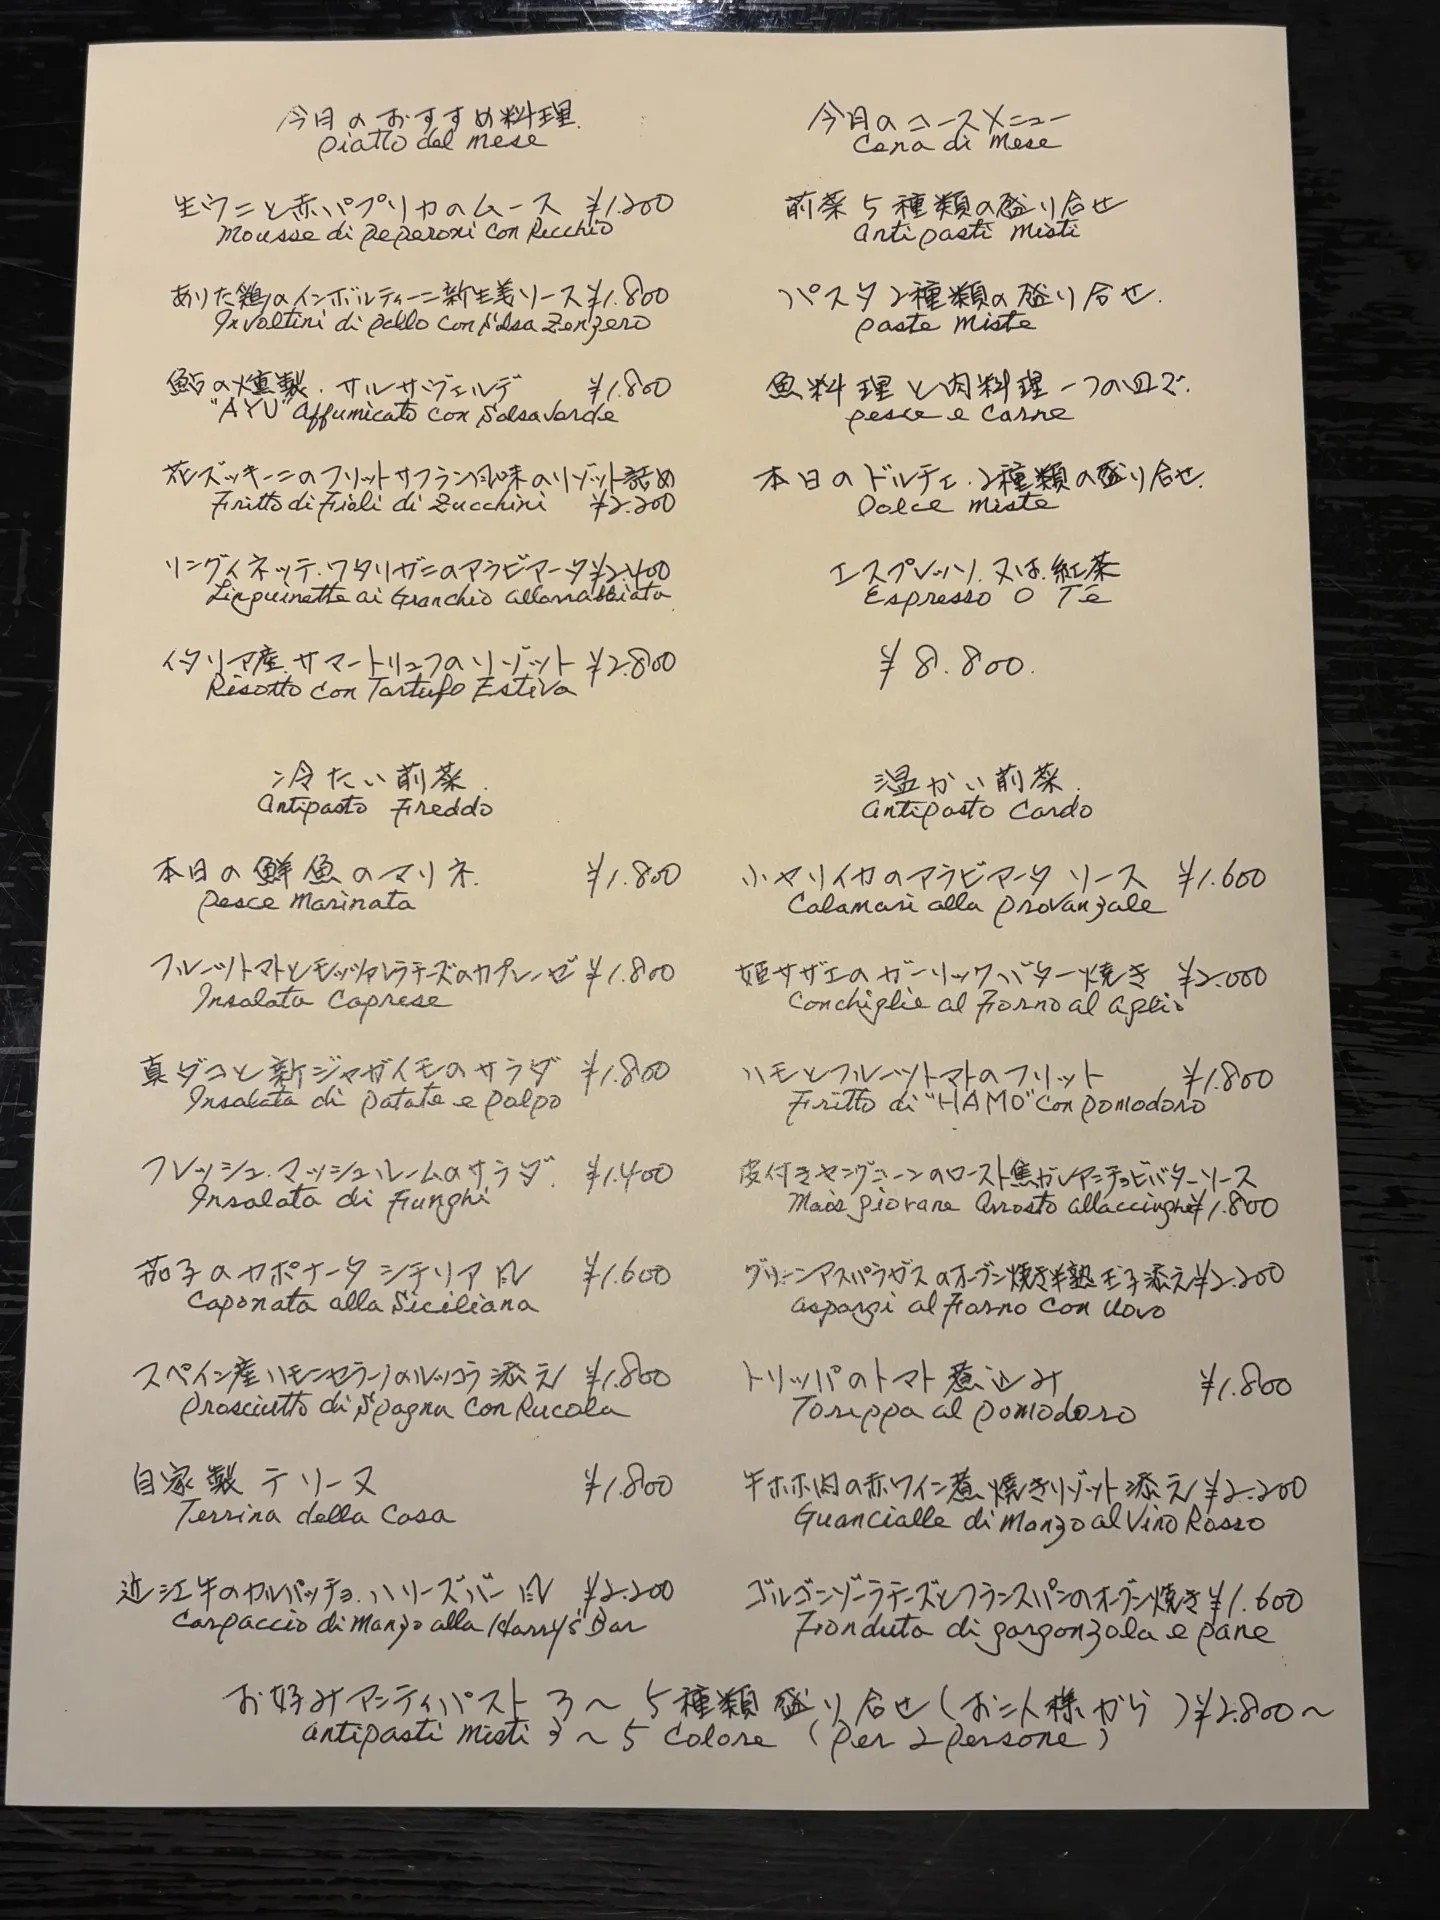 今月のおすすめ料理.
piatto del mese
生ウニと赤パプリカのムース ¥1.200
Mousse di peperoni con Ricchio
ありた鶏のインボルティーニ新生姜ソース ¥1.800
Involtini di pollo con Salsa Zenzero
鮎の燻製.サルサヴェルデ ¥1.800
"AYU" affumicato con Salsa Verde
花ズッキーニのフリットサフラン風味のリゾット詰め
Fritto di Fioli di Zucchini ¥2.200
リングイネッテ.ワタリガニのアラビアータ ¥2.400
Linguinette ai Granchio allarrabbiata
イタリア産.サマートリュフのリゾット ¥2.800
Risotto con Tartufo Estiva
今月のコースメニュー
Cena di Mese
前菜5種類の盛り合せ
Antipasti Misti
パスタ2種類の盛り合せ.
paste Miste
魚料理と肉料理一つの皿で.
pesce e Carne
本日のドルチェ.2種類の盛り合せ.
Dolce Miste
エスプレッソ.又は.紅茶
Espresso O Te
¥8.800.
冷たい前菜.
Antipasto Freddo
本日の鮮魚のマリネ. ¥1.800
Pesce Marinata
フルーツトマトとモッツァレラチーズのカプレーゼ ¥1.800
Insalata Caprese
真ダコと新ジャガイモのサラダ ¥1.800
Insalata di patate e polpo
フレッシュ.マッシュルームのサラダ. ¥1.400
Insalata di Funghi
茄子のカポナータ シチリア風 ¥1.600
Caponata alla Siciliana
スペイン産ハモンセラーノのルッコラ添え ¥1.800
Prosciutto di Spagna con Rucola
自家製テリーヌ ¥1.800
Terrina della Casa
近江牛のカルパッチョ.ハリーズバー風 ¥2.200
Carpaccio di Manzo alla Harry's Bar
温かい前菜.
Antipasto Cardo
小ヤリイカのアラビアータ ソース ¥1.600
Calamari alla provanzale
姫サザエのガーリックバター焼き ¥2.000
Conchiglie al Forno al aglio
ハモとフルーツトマトのフリット ¥1.800
Fritto di "HAMO" con pomodoro
皮付きヤングコーンのロースト焦がしアンチョビバターソース
Mais giovane Arrosto allacciughe ¥1.800
グリーンアスパラガスのオーブン焼き半熟玉子添え ¥2.200
aspargi al Forno con Uovo
トリッパのトマト煮込み ¥1.800
Torippa al pomodoro
牛ホホ肉の赤ワイン煮 焼きリゾット添え ¥2.200
Guancialle di Manzo al Vino Rosso
ゴルゴンゾーラチーズとフランスパンのオーブン焼き ¥1.600
Fonduta di gorgonzola e pane
お好みアンティパスト 3〜5種類盛り合せ(お二人様から)¥2.800〜
antipasti misti 3〜5 Colore (per 2 persone)